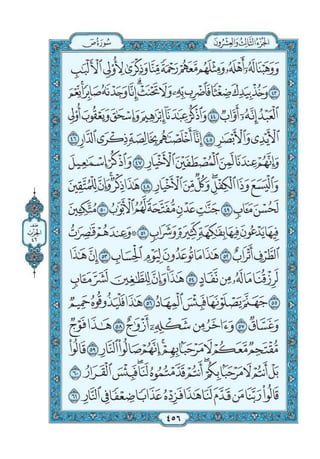 الجزء الثالث والعشرون
سورة ص
ووهبنا له أهله ومثلهم معهم رحمة منا وذكرى لأولي الألباب
٤٣ وخذ بيدك ضغثا فاضرب به ولا تحنث إنا وجدناه صابرا نعم
العبد إنه أواب ٤٤ واذكر عبادنا إبراهيم وإسحاق ويعقوب أولي
الأيدي والأبصار ٤٥ إنا أخلصناهم بخالصة ذكرى الدار ٤٦
وإنهم عندنا لمن المصطفين الأخيار ٤٧ واذكر إسماعيل
واليسع وذا الكفل وكل من الأخيار ٤٨ هذا ذكر وإن للمتقين
لحسن مآب ٤٩ جنات عدن مفتحة لهم الأبواب ٥٠ متكئين
فيها يدعون فيها بفاكهة كثيرة وشراب ٥١ وعندهم قاصرات
الطرف أتراب ٥٢ هذا ما توعدون ليوم الحساب ٥٣ إن هذا
لرزقنا ما له من نفاد ٥٤ هذا وإن للطاغين لشر مآب
٥٥ جهنم يصلونها فبئس المهاد ٥٦ هذا فليذوقوه حميم
وغساق ٥٧ وآخر من شكله أزواج ٥٨ هذا فوج
مقتحم معكم لا مرحبا بهم إنهم صالوا النار ٥٩ قالوا
بل أنتم لا مرحبا بكم أنتم قدمتموه لنا فبئس القرار ٦٠
قالوا ربنا من قدم لنا هذا فزده عذابا ضعفا في النار ٦١
٤٥٦